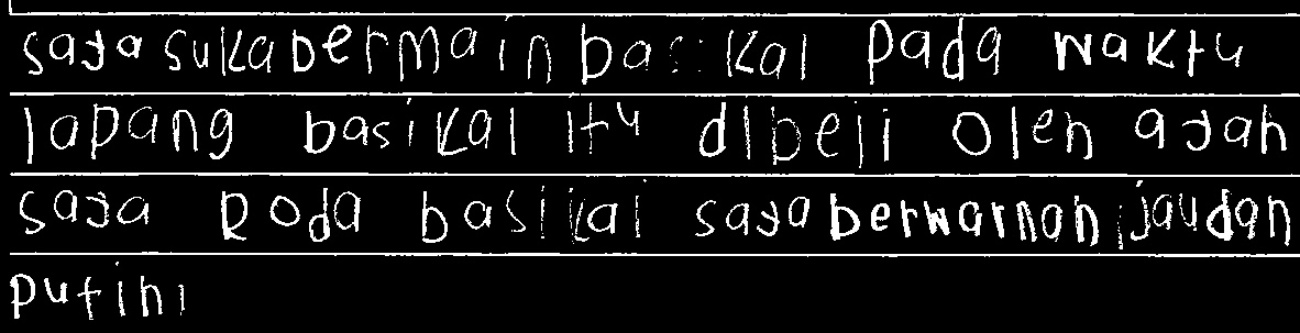 saya suka bermain basikal pada waktu
lapang basikal itu dibeli oleh ayah
saya Roda basikal saya berwarna hijau dan
putih